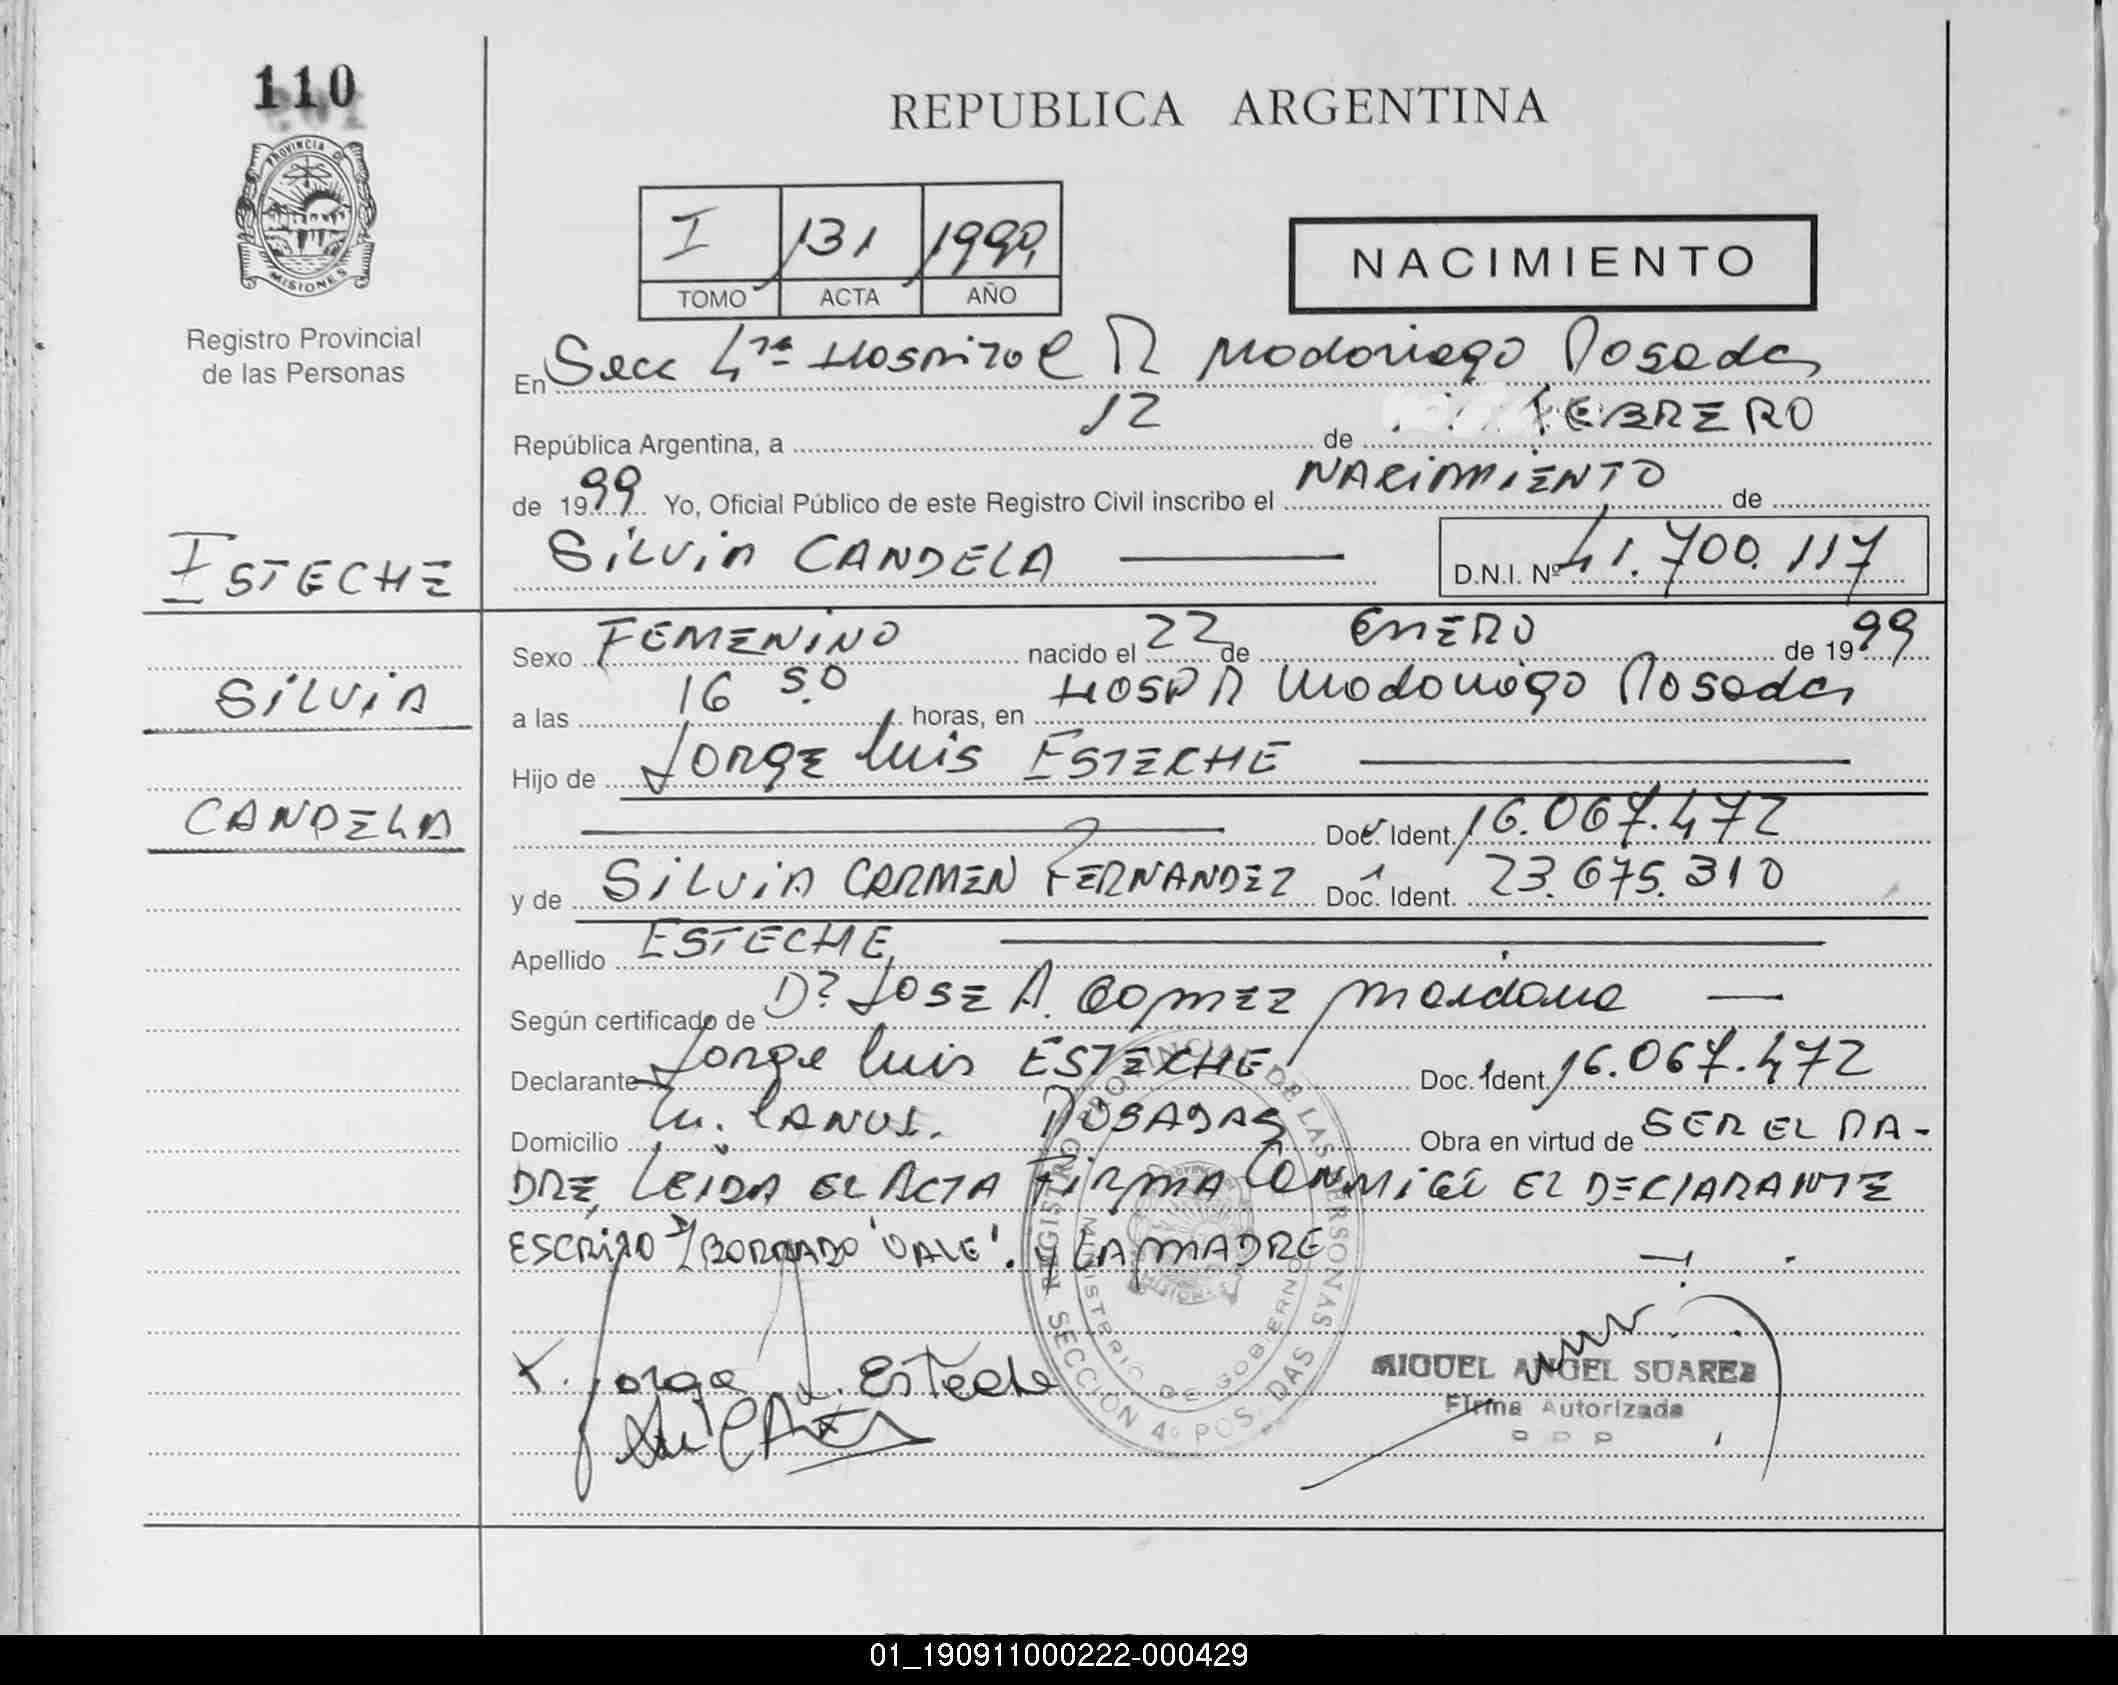 110
PROVINCIA DE
MISIONES
Registro Provincial
de las Personas
REPUBLICA ARGENTINA
I 131 1999
TOMO ACTA AÑO
NACIMIENTO
En Secc 4ta Hospital R Madariaga Posadas
República Argentina, a 12 de FEBRERO
de 1999 Yo, Oficial Público de este Registro Civil inscribo el NACIMIENTO de
SILVIA CANDELA D.N.I. Nº 41.700.117
ESTECHE
SILVIA
CANDELA
Sexo FEMENINO nacido el 22 de ENERO de 1999
a las 16 50 horas, en HOSP R Madariaga Posadas
Hijo de Jorge Luis ESTECHE
Doc. Ident. 16.067.472
y de SILVIA CARMEN FERNANDEZ Doc. Ident. 23.675.310
Apellido ESTECHE
Según certificado de Dr JOSE A. GOMEZ
Declarante Jorge Luis ESTECHE Doc. Ident. 16.067.472
Domicilio LANUS. POSADAS Obra en virtud de SER EL PA-
DRE, LEIDA EL ACTA FIRMA CONMIGO EL DECLARANTE
ESCRITO S/BORRADO 'VALE'. Y LA MADRE
Jorge L. Esteche
REGISTRO PROVINCIAL DE LAS PERSONAS
MINISTERIO DE GOBIERNO
SECCION 4º POSADAS
MIGUEL ANGEL SUAREZ
Firma Autorizada
01_190911000222-000429